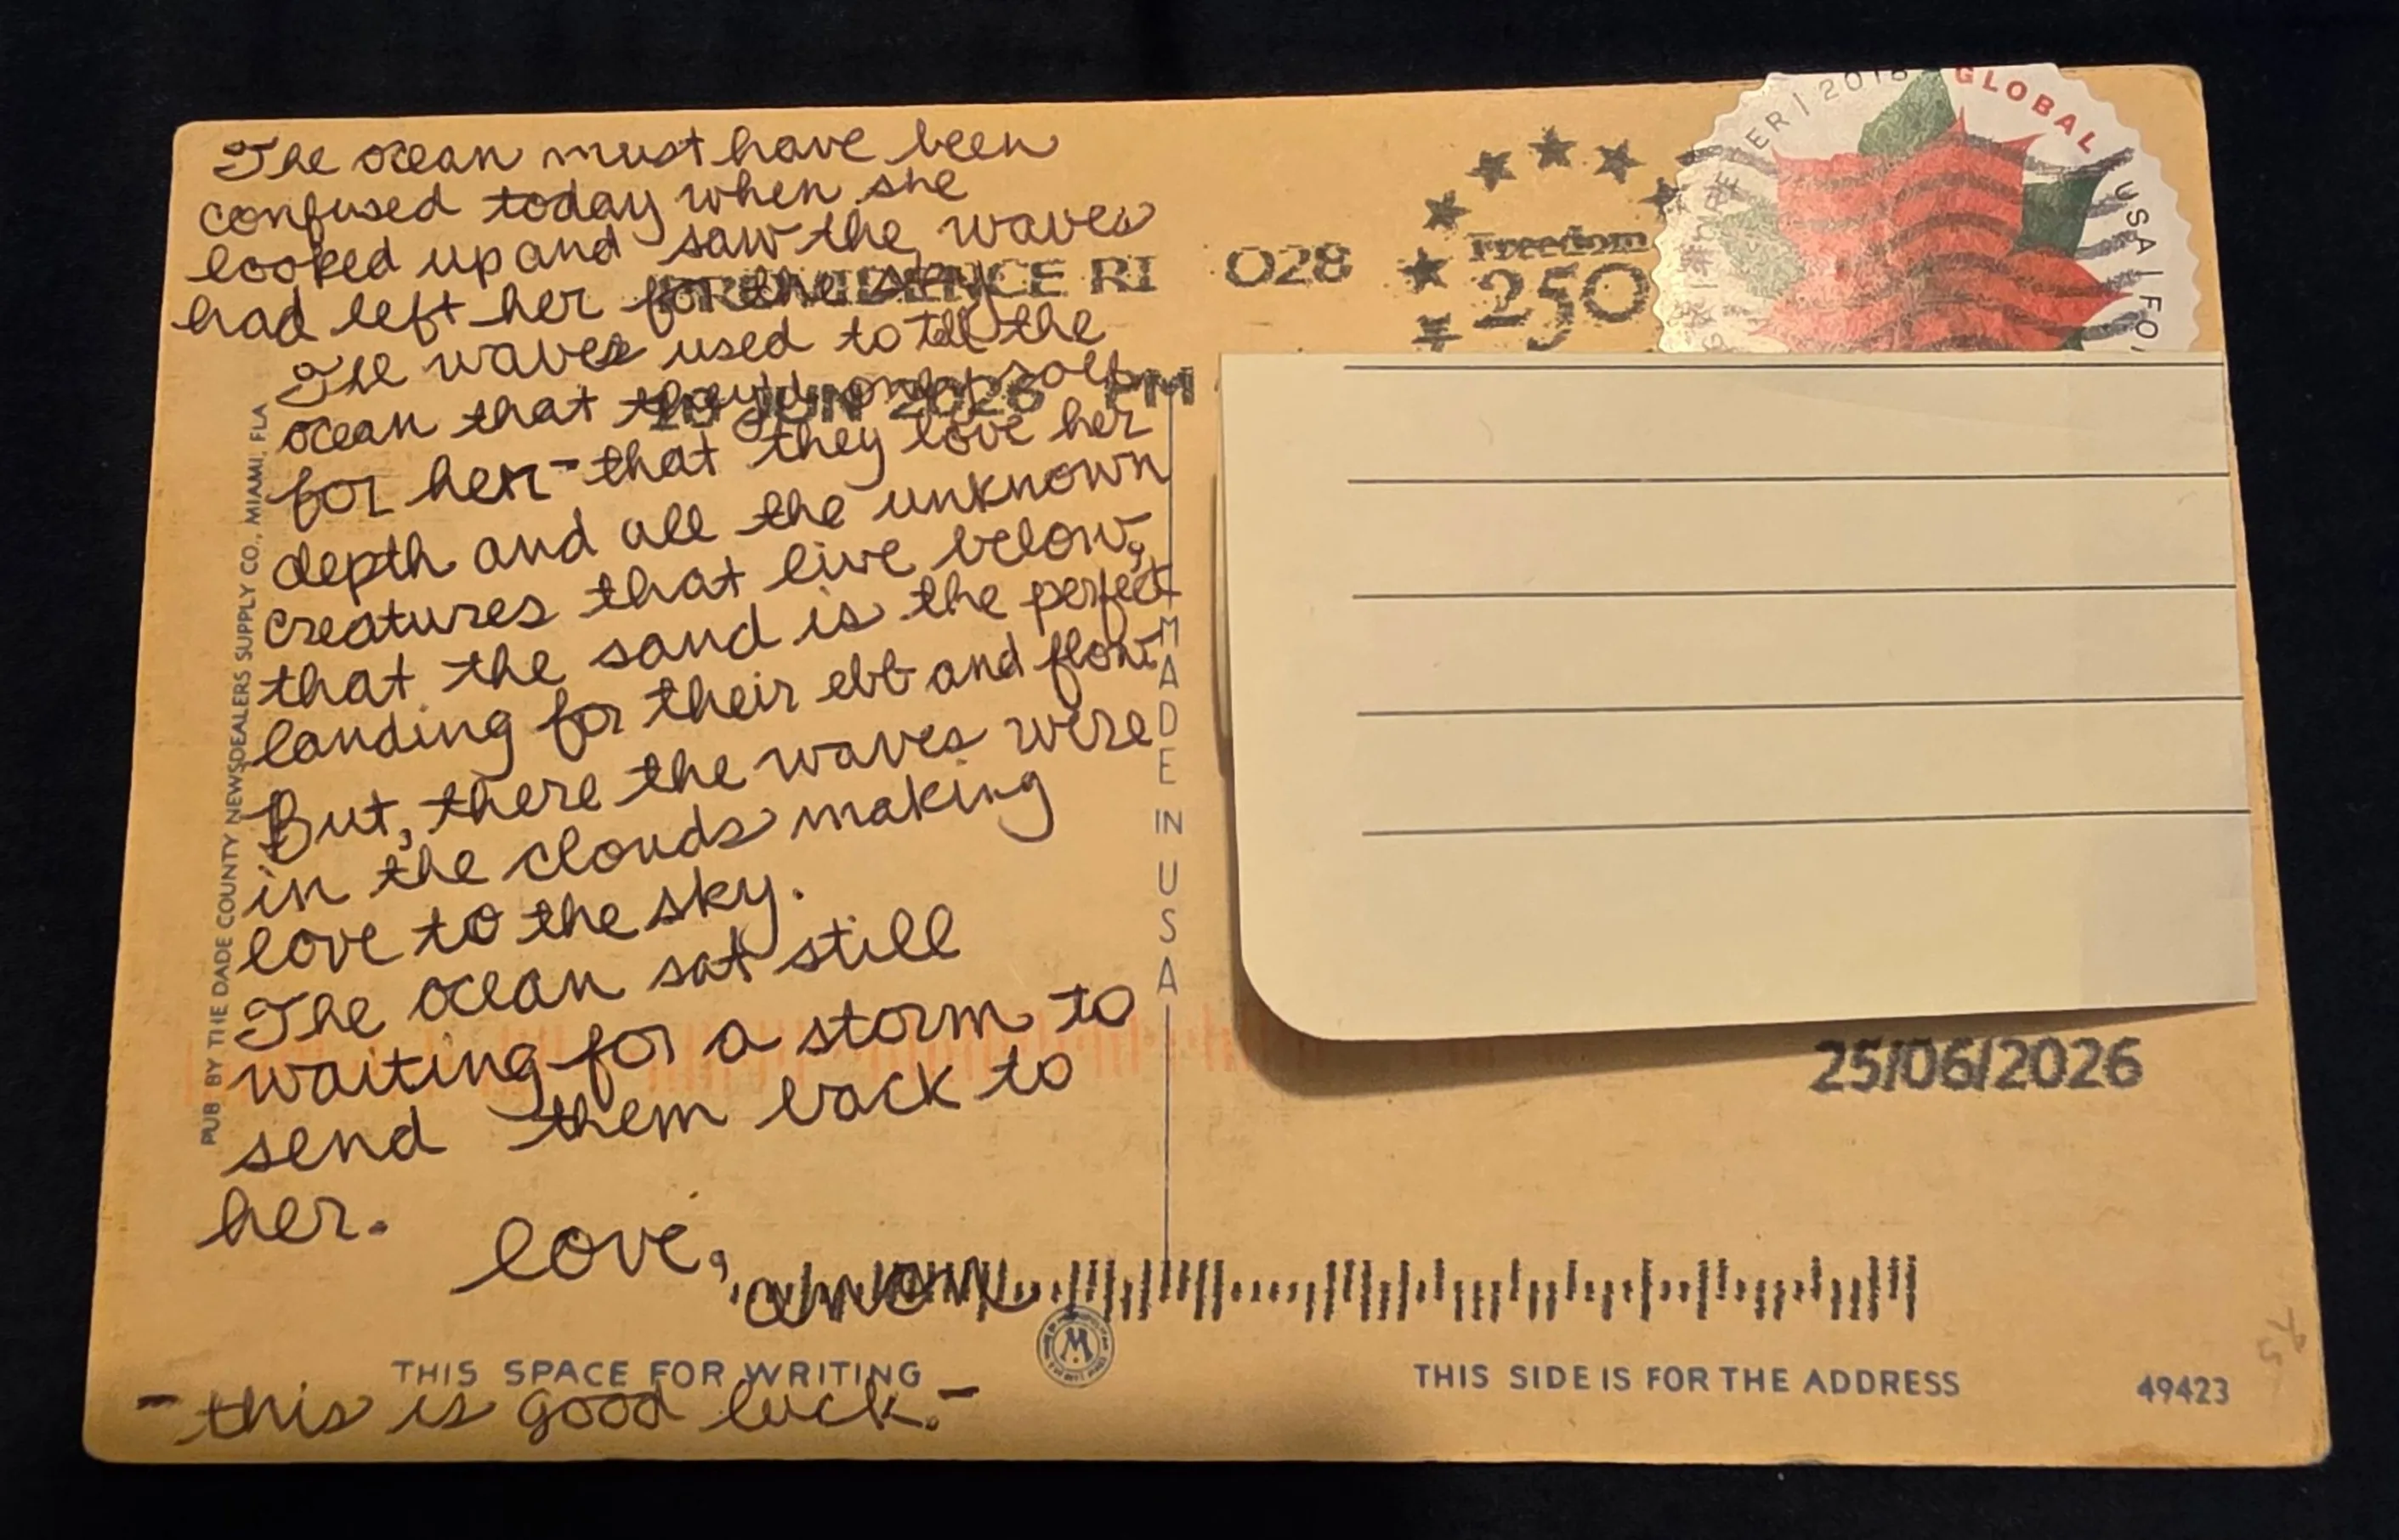 The ocean must have been
confused today when she
looked up and saw the waves
had left her for the sky
The waves used to tell the
ocean that they'd only roll
for her - that they love her
depth and all the unknown
creatures that live below,
that the sand is the perfect
landing for their ebb and flow
But, there the waves were
in the clouds making
love to the sky.
The ocean sat still
waiting for a storm to
send them back to
her.
love,
anon
THIS SPACE FOR WRITING
- this is good luck. -
PUB BY THE DADE COUNTY NEWSDEALERS SUPPLY CO., MIAMI, FLA
MADE IN USA
PROVIDENCE RI 028
JUN 2026 PM
Freedom
250
GLOBAL
USA | FO
25/06/2026
THIS SIDE IS FOR THE ADDRESS
49423